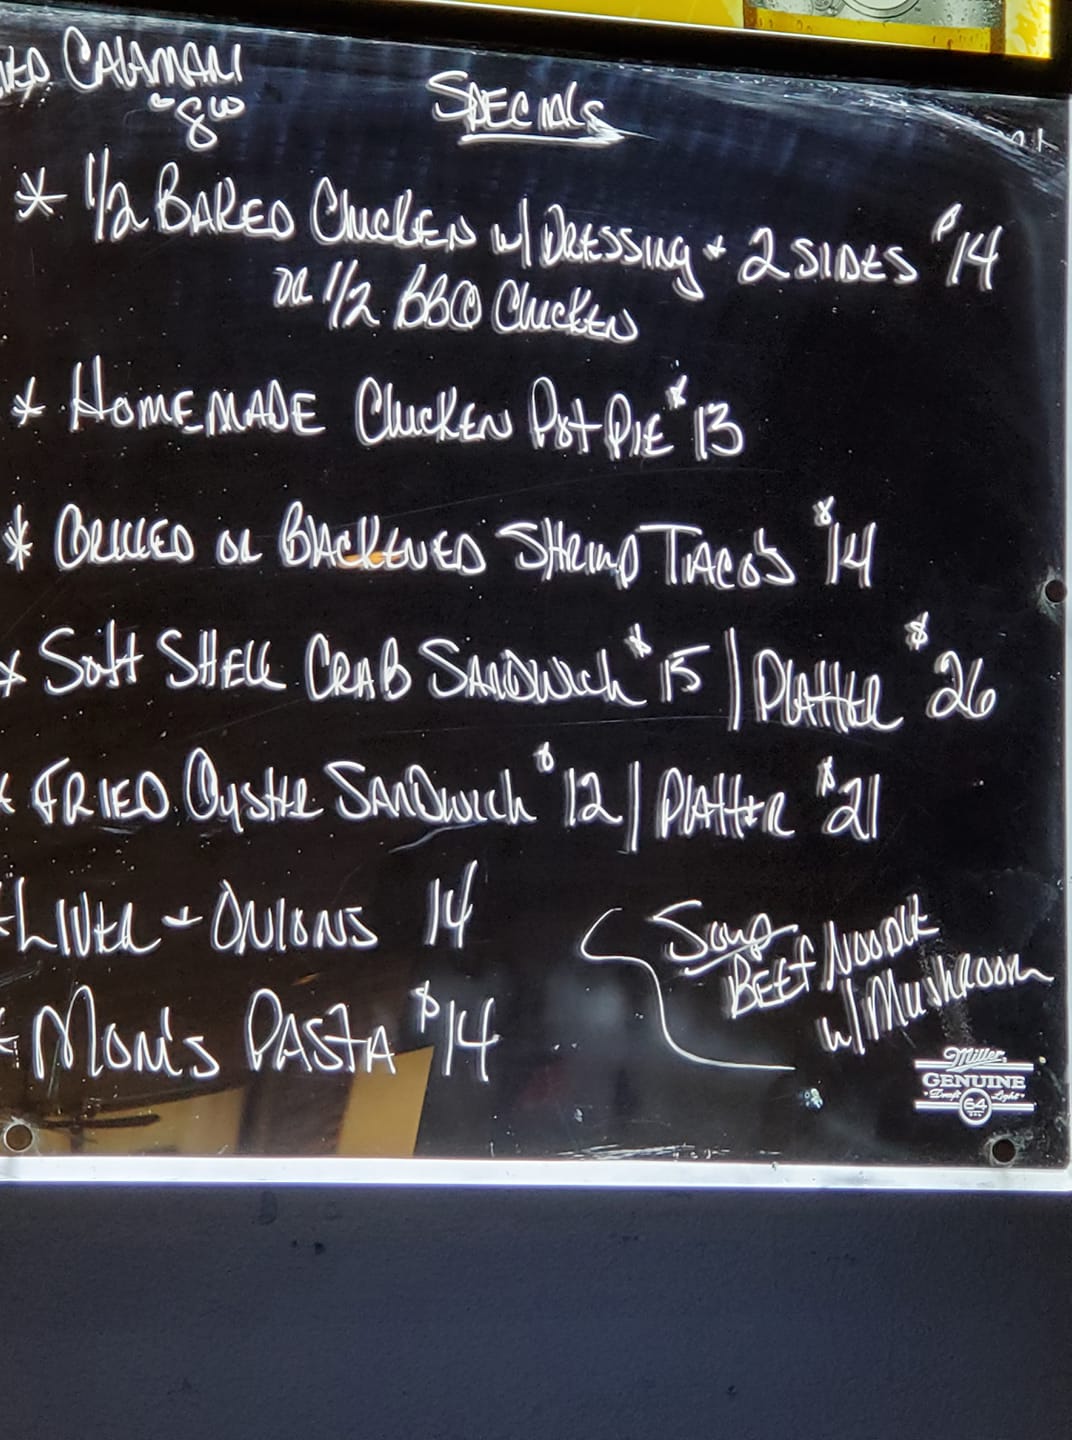 CALAMARI
$8.00
SPECIALS
* 1/2 BAKED CHICKEN w/ DRESSING + 2 SIDES $14
OR 1/2 BBQ CHICKEN
* HOMEMADE CHICKEN POT PIE $13
* GRILLED OR BLACKENED SHRIMP TACO'S $14
* SOFT SHELL CRAB SANDWICH $15 | PLATTER $26
* FRIED OYSTER SANDWICH $12 | PLATTER $21
* LIVER + ONIONS 14
* MOM'S PASTA $14
SOUP
BEEF NOODLE
w/ MUSHROOM
Miller
GENUINE
Draft Light
64